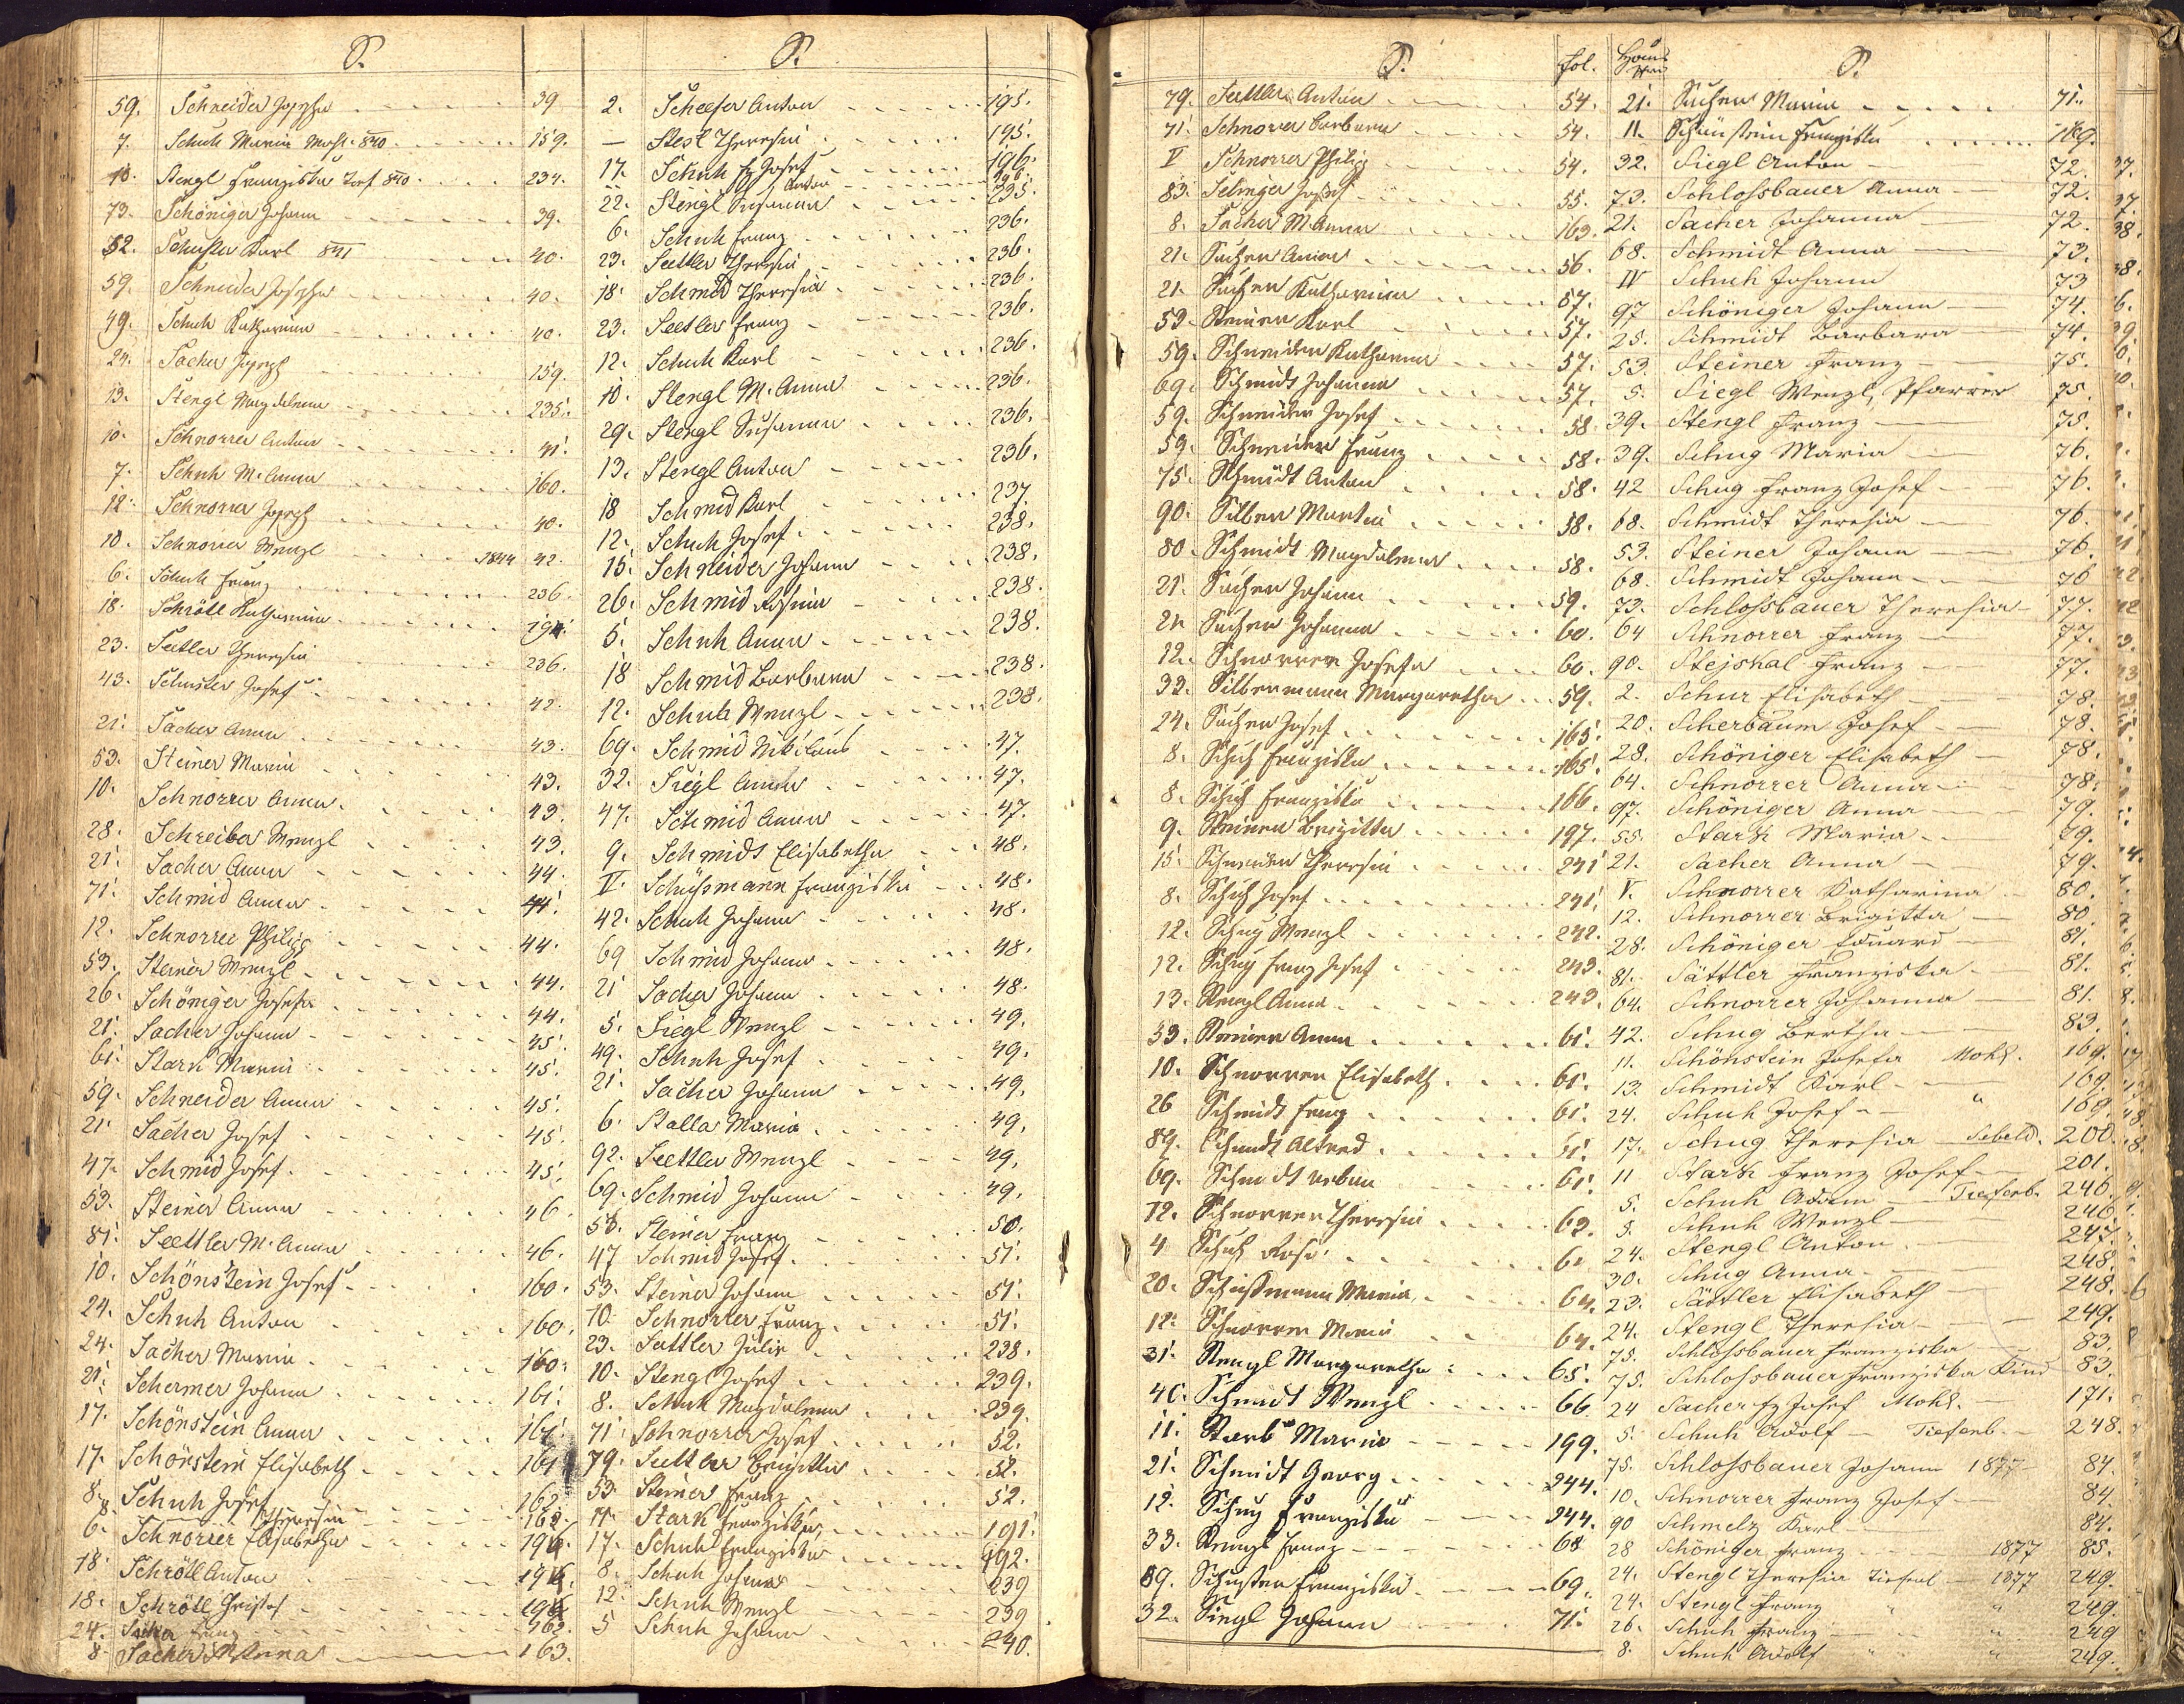 S.
59. Schneider Josepha 39
7. Schuh Maria Mohl. 840 159.
10. Stengl Franziska Torf 840 234.
73. Schöniger Johann 39.
52. Schuster Karl 841 40.
59. Schneider Josepha 40.
49. Schuh Katharina 40.
24. Sacher Joseph 159.
13. Stengl Magdalena 235.
10. Schnorrer Anton 41.
7. Schuh M. Anna 160.
12. Schnorrer Joseph 40.
10. Schnorrer Wenzl 1844 42.
6. Schuh Franz 236.
18. Schröll Katharina 194.
23. Sattler Theresia 236.
43. Schuster Josef 42.
21. Sacher Anna 43.
53. Steiner Maria 43.
10. Schnorrer Anna 43.
28. Schreiber Wenzl 43.
21. Sacher Anna 44.
71. Schmid Anna 44.
12. Schnorrer Philipp 44.
53. Steiner Wenzl 44.
26. Schöniger Josefa 44.
21. Sacher Johann 45.
61. Stark Maria 45.
59. Schneider Anna 45.
21. Sacher Josef 45.
47. Schmid Josef 45.
53. Steiner Anna 46.
81. Seettler M. Anna 46.
10. Schönstein Josef 160.
24. Schuh Anton 160.
24. Sacher Maria 160.
21. Schermer Johann 161.
17. Schönstein Anna 161.
17. Schönstein Elisabeth 161
8. Schuh Josef 162.
8 Theresia 162.
6. Schnorrer Elisabetha 194.
18. Schröll Anton 194.
18. Schröll 194
24. Sacher Franz 162.
8. Sacher M Anna 163.
S.
2. Scheefer Anton 195.
— Stesl Theresia 195.
17. Schuh Fz Josef 196.
Anton 196.
22. Stengl Susanna 235.
6. Schuh Franz 236.
23. Seettler Theresia 236.
18. Schmid Theresia 236.
23. Seettler Franz 236.
12. Schuh Karl 236.
10. Stengl M. Anna 236.
29. Stengl Susanna 236.
13. Stengl Anton 236.
18 Schmid Karl 237.
12. Schuh Josef 238.
15. Schneider Johann 238.
26. Schmid Rosina 238.
5. Schuh Anna 238.
18 Schmid Barbara 238.
12. Schuh Wenzl 238.
69. Schmid Nikolaus 47.
32. Siegl Anna 47.
47. Schmid Anna 47.
9. Schmidt Elisabetha 48.
II. Schüssmann Franziska 48.
42. Schuh Johann 48.
69 Schmid Johann 48.
21 Sacher Johann 48.
5. Siegl Wenzl 49.
49. Schuh Josef 49.
21. Sacher Johann 49.
6. Stalla Maria 49.
92. Seettler Wenzl 49.
69. Schmid Johann 49.
53. Steiner Franz 50.
47 Schmid Josef 51.
53. Steiner Johann 51.
10. Schnorrer Franz 51.
23. Sattler Julie 238.
10. Stengl Josef 239.
8. Schuh Magdalena 239.
71. Schnorrer Josef 52.
79. Sattler Brigitta 52.
53 Steiner Franz 52.
11. Stark Franziska 191.
17. Schuh Franziska 192.
8. Schuh Johann 239
12. Schuh Wenzl 239
5 Schuh Johann 240.
S. fol.
79. Sattler Anton 54.
71. Schnorrer Barbara 54.
V Schnorrer Philipp 54.
83. Selinger Josef 55.
8. Sacher M Anna 163.
21. Sacher Anna 56.
21. Sacher Katharina 57.
53. Steiner Karl 57.
59. Schneider Katharina 57.
69. Schmidt Johanna 57.
59. Schneider Josef 58.
59. Schneider Franz 58.
75. Schmidt Anton 58.
90. Silber Martin 58.
80. Schmidt Magdalena 58.
21. Sacher Johann 59.
21. Sacher Johanna 60.
12. Schnorrer Josefa 60.
33. Silbermann Margaretha 59.
24. Sacher Josef 165.
8. Schuh Franziska 165.
8. Schuh Franziska 166.
9. Steiner Brigitta 197.
15. Schneider Theresia 241
8. Schuh Josef 241.
12. Schug Wenzl 242.
12. Schug Franz Josef 243.
13. Stengl Anna 243.
53. Steiner Anna 61.
10. Schnorrer Elisabeth 61.
26 Schmidt Franz 61.
89. Schmidt Alfred 61.
69. Schmidt Urban 61.
12. Schnorrer Theresia 63.
4 Schuh Rosi 61
20. Schüssmann Maria 64.
12. Schnorrer Maria 64.
31. Stengl Margaretha 65.
40. Schmidt Wenzl 66
11. Stark Maria 199.
21. Schmidt Georg 244.
12. Schug Franziska 244.
33. Stengl Franz 68
89. Schuster Franziska 69.
32. Siegl Johann 71.
Haus Nro S.
21. Sacher Maria 71.
11. Schönstein Franziska 169.
32. Siegl Anton 72.
73. Schlossbauer Anna 72.
21. Sacher Johanna 72.
68. Schmidt Anna 73.
IV Schuh Johann 73
97 Schöniger Johann 74.
25. Schmidt Barbara 74.
53. Steiner Franz 75.
5. Siegl Wenzl, Pfarrer 75.
39. Stengl Franz 75.
39. Schug Maria 76.
42 Schug Franz Josef 76.
68. Schmidt Theresia 76.
53. Steiner Johann 76.
68. Schmidt Johann 76
73. Schlossbauer Theresia 77.
64 Schnorrer Franz 77.
90. Stejskal Franz 77.
2. Schur Elisabeth 78.
20. Scherbaum Josef 78.
28. Schöniger Elisabeth 78.
64. Schnorrer Anna 78.
97. Schöniger Anna 79.
55. Stark Maria 79.
21. Sacher Anna 79.
V. Schnorrer Katharina 80.
12. Schnorrer Brigitta 80
28. Schöniger Eduard 81.
81. Sättler Franziska 81.
64. Schnorrer Johanna 81.
42. Schug Bertha 83.
11. Schönstein Josefa Mohl. 169.
13. Schmidt Karl 169.
24. Schuh Josef " 169.
17. Schug Theresia Sebeld. 200.
11 Stark Franz Josef 201.
5. Schuh Adam Tiefenb. 246.
5. Schuh Wenzl 246.
24. Stengl Anton 247.
30. Schug Anna 248.
23. Sättler Elisabeth 248.
24. Stengl Theresia 249.
75. Schlossbauer Franziska 83.
75. Schlossbauer Franziska Kind 83.
24 Sacher Fz Josef Mohl. 171.
5. Schuh Adolf Tiefenb. 248.
75. Schlossbauer Johann 1877 84.
10. Schnorrer Franz Josef 84.
90 Schmelz Karl 84.
28 Schöniger Franz 1877 85.
24. Stengl Theresia Tiefenb. 1877 249.
24. Stengl Franz " " 249.
26. Schuh Franz " 249
8. Schuh Adolf " " 249.